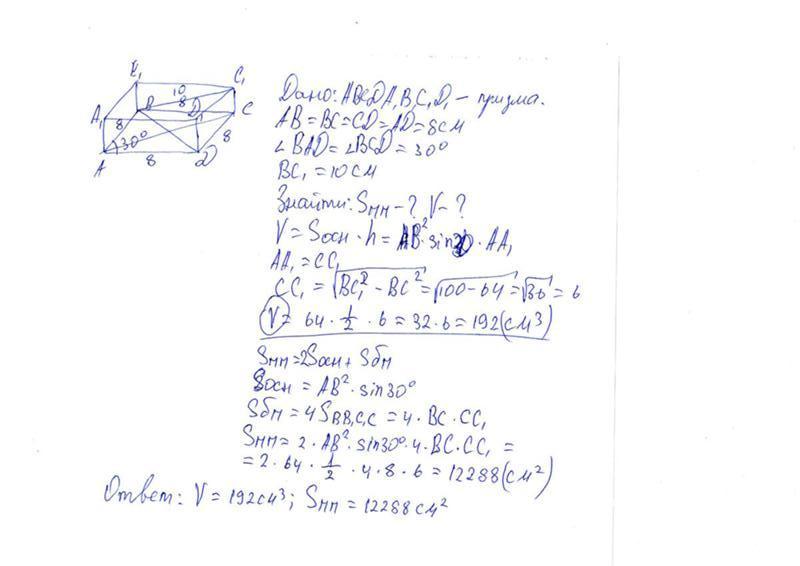 B₁
C₁
10
A₁
8
B
8
D₁
C
30°
8
A
8
D
Дано: ABCDA₁B₁C₁D₁ – призма.
AB = BC = CD = AD = 8 см
∠BAD = ∠BCD = 30°
BC₁ = 10 см
Знайти: Sпп – ? V – ?
V = Sосн · h = AB² · sin30 · AA₁
AA₁ = CC₁
CC₁ = √BC₁² – BC² = √100 – 64 = √36 = 6
V = 64 · 1/2 · 6 = 32 · 6 = 192 (см³)
Sпп = 2Sосн + Sбп
Sосн = AB² · sin30°
Sбп = 4SBB₁C₁C = 4 · BC · CC₁
Sпп = 2 · AB² · sin30° · 4 · BC · CC₁ =
= 2 · 64 · 1/2 · 4 · 8 · 6 = 12288 (см²)
Ответ: V = 192 см³; Sпп = 12288 см²